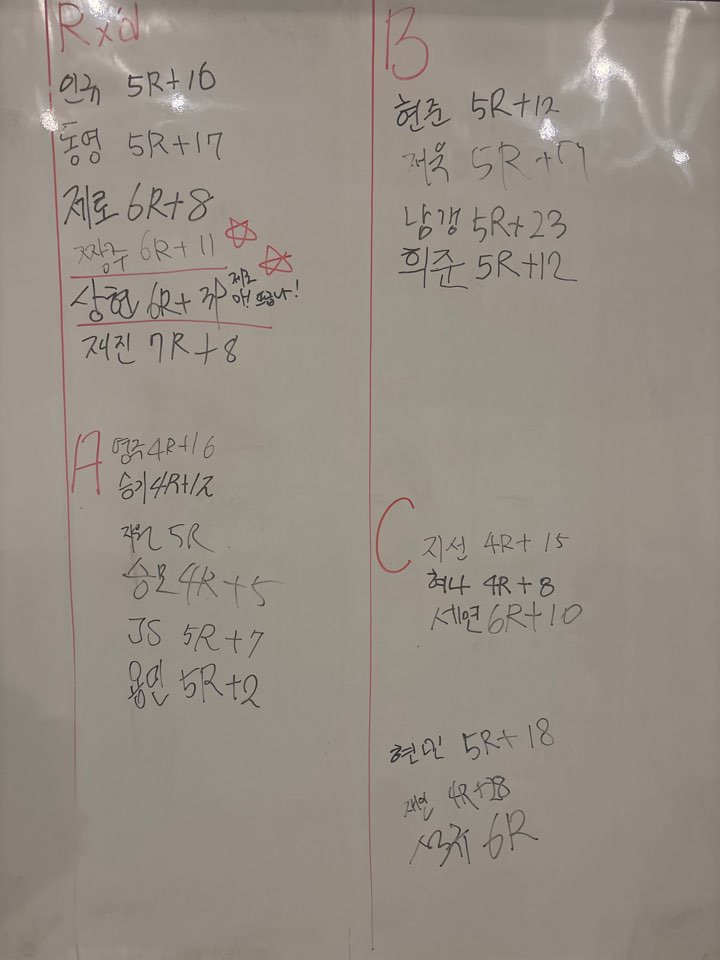 Rx'd
인규 5R+16
동영 5R+17
제로 6R+8
짜장구 6R+11
상현 6R+
제로
야! 뜨굽나!
재진 7R+8
A
영국 4R+16
승기 4R+12
5R
승모 4R+5
JS 5R+7
용연 5R+2
B
현준 5R+12
저욱 5R+17
남갱 5R+23
희준 5R+12
C
지선 4R+15
혀나 4R+8
세연 6R+10
현민 5R+18
재연 4R+28
6R